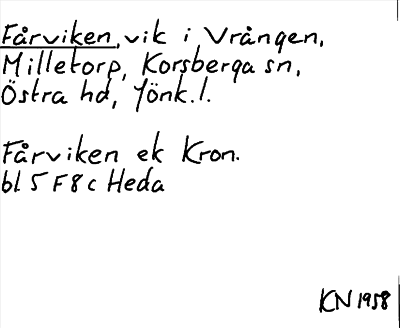 Fårviken, vik i Vrången,
Milletorp, Korsberga sn,
Östra hd, Jönk.l.
Fårviken ek Kron.
bl 5 F 8 c Heda
KN 1958